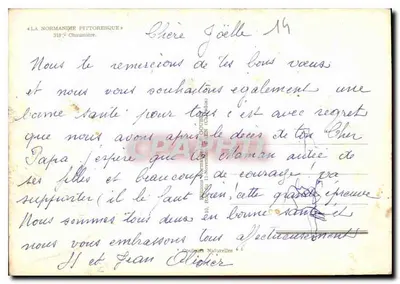 «LA NORMANDIE PITTORESQUE»
Chère Joëlle 14
Nous te remercions de tes bons vœux
et nous vous souhaitons egalement une
bonne santé pour tous c'est avec regret
que nous avons apris le decès de ton Cher
Papa j'espère que ta Maman entourée de
ses filles et beaucoup de courage, va
supporter (il le faut bien) cette grande épreuve
Nous sommes tous deux en bonne santé et
nous vous embrassons tous affectueusement
et Jean
Couleurs Naturelles